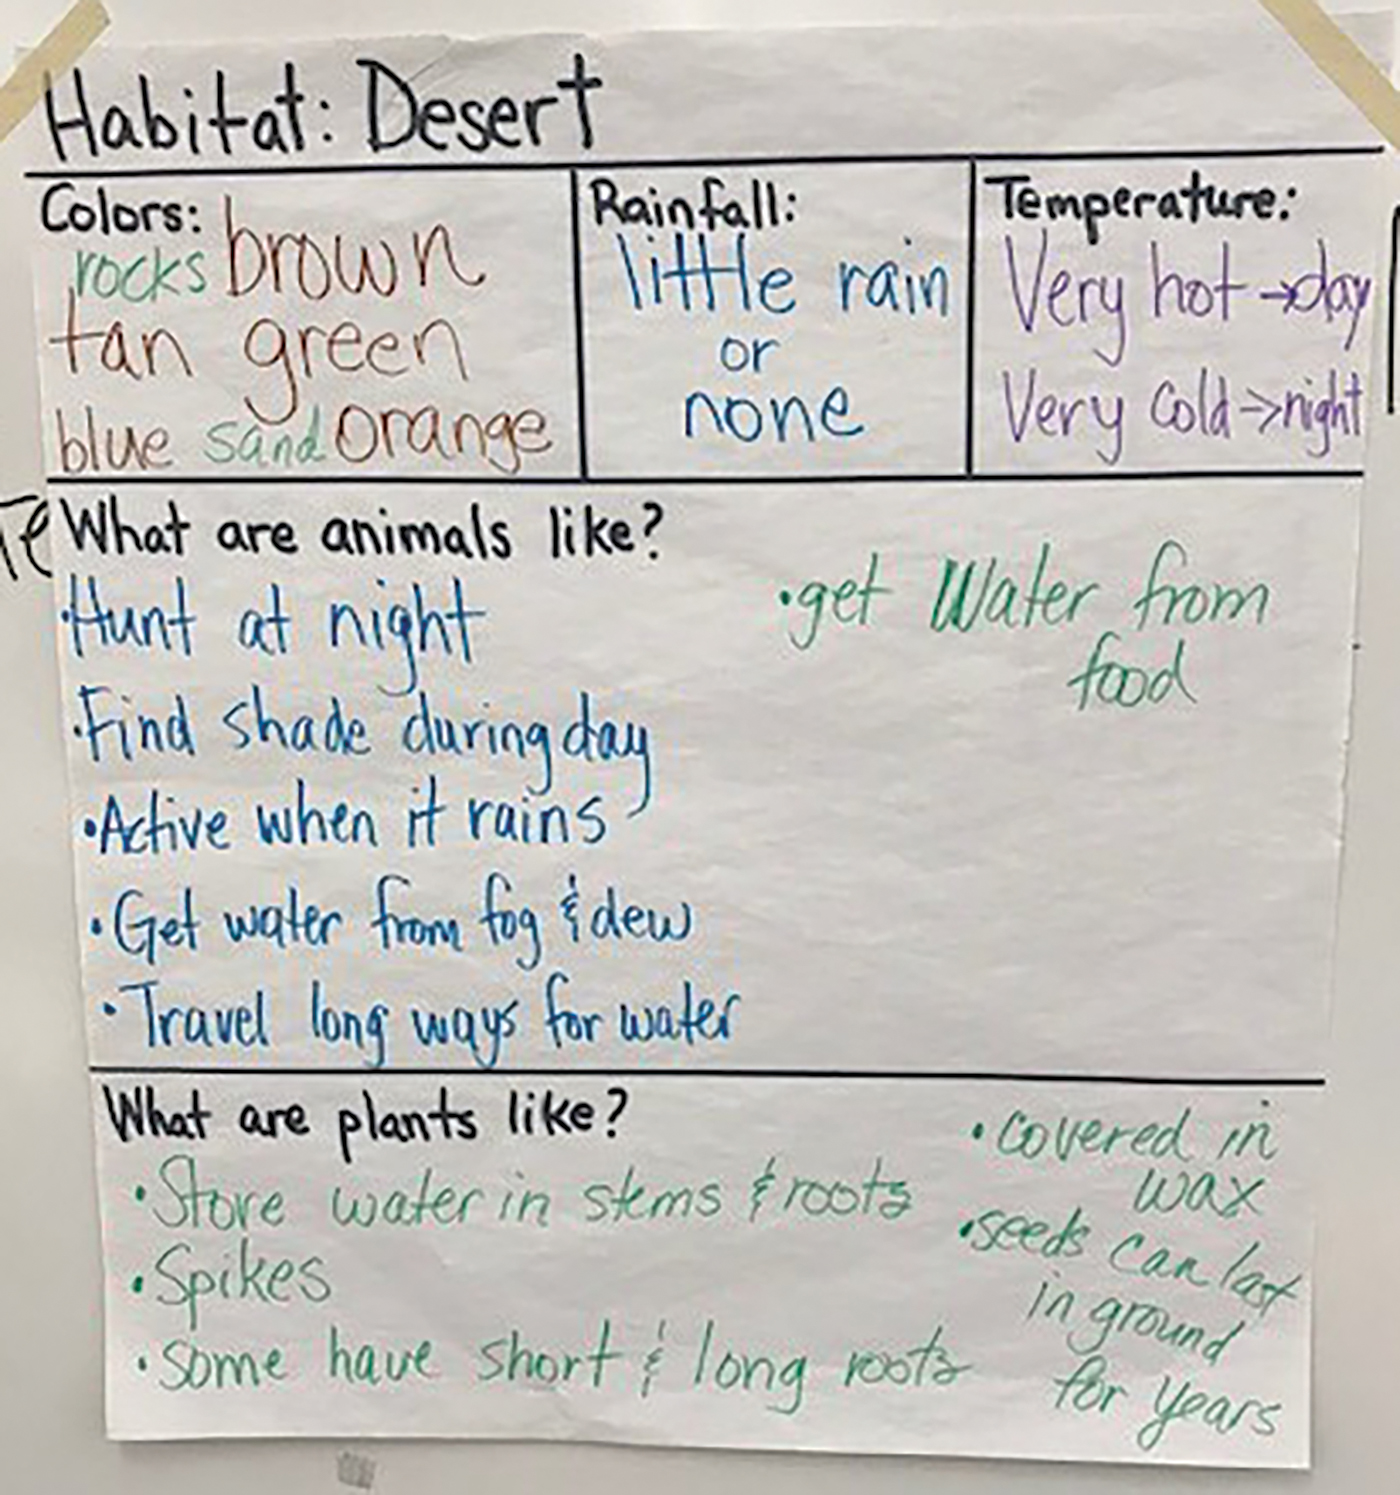 Habitat: Desert
Colors:
rocks brown
tan green
blue sand orange
Rainfall:
little rain
or
none
Temperature:
Very hot →day
Very cold →night
What are animals like?
·Hunt at night
·Find shade during day
·Active when it rains
·Get water from fog & dew
·Travel long ways for water
·get Water from
food
What are plants like?
·Store water in stems & roots
·Spikes
·some have short & long roots
·covered in
wax
·seeds can last
in ground
for years